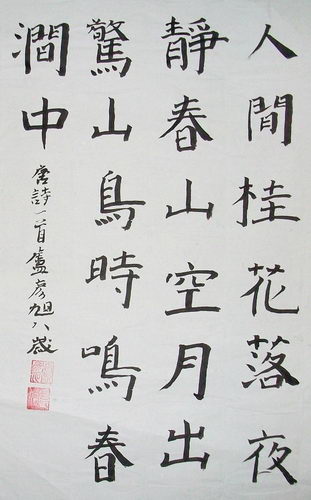 人間桂花落夜
靜春山空月出
驚山鳥時鳴春
澗中
唐詩一首盧彦旭八歲